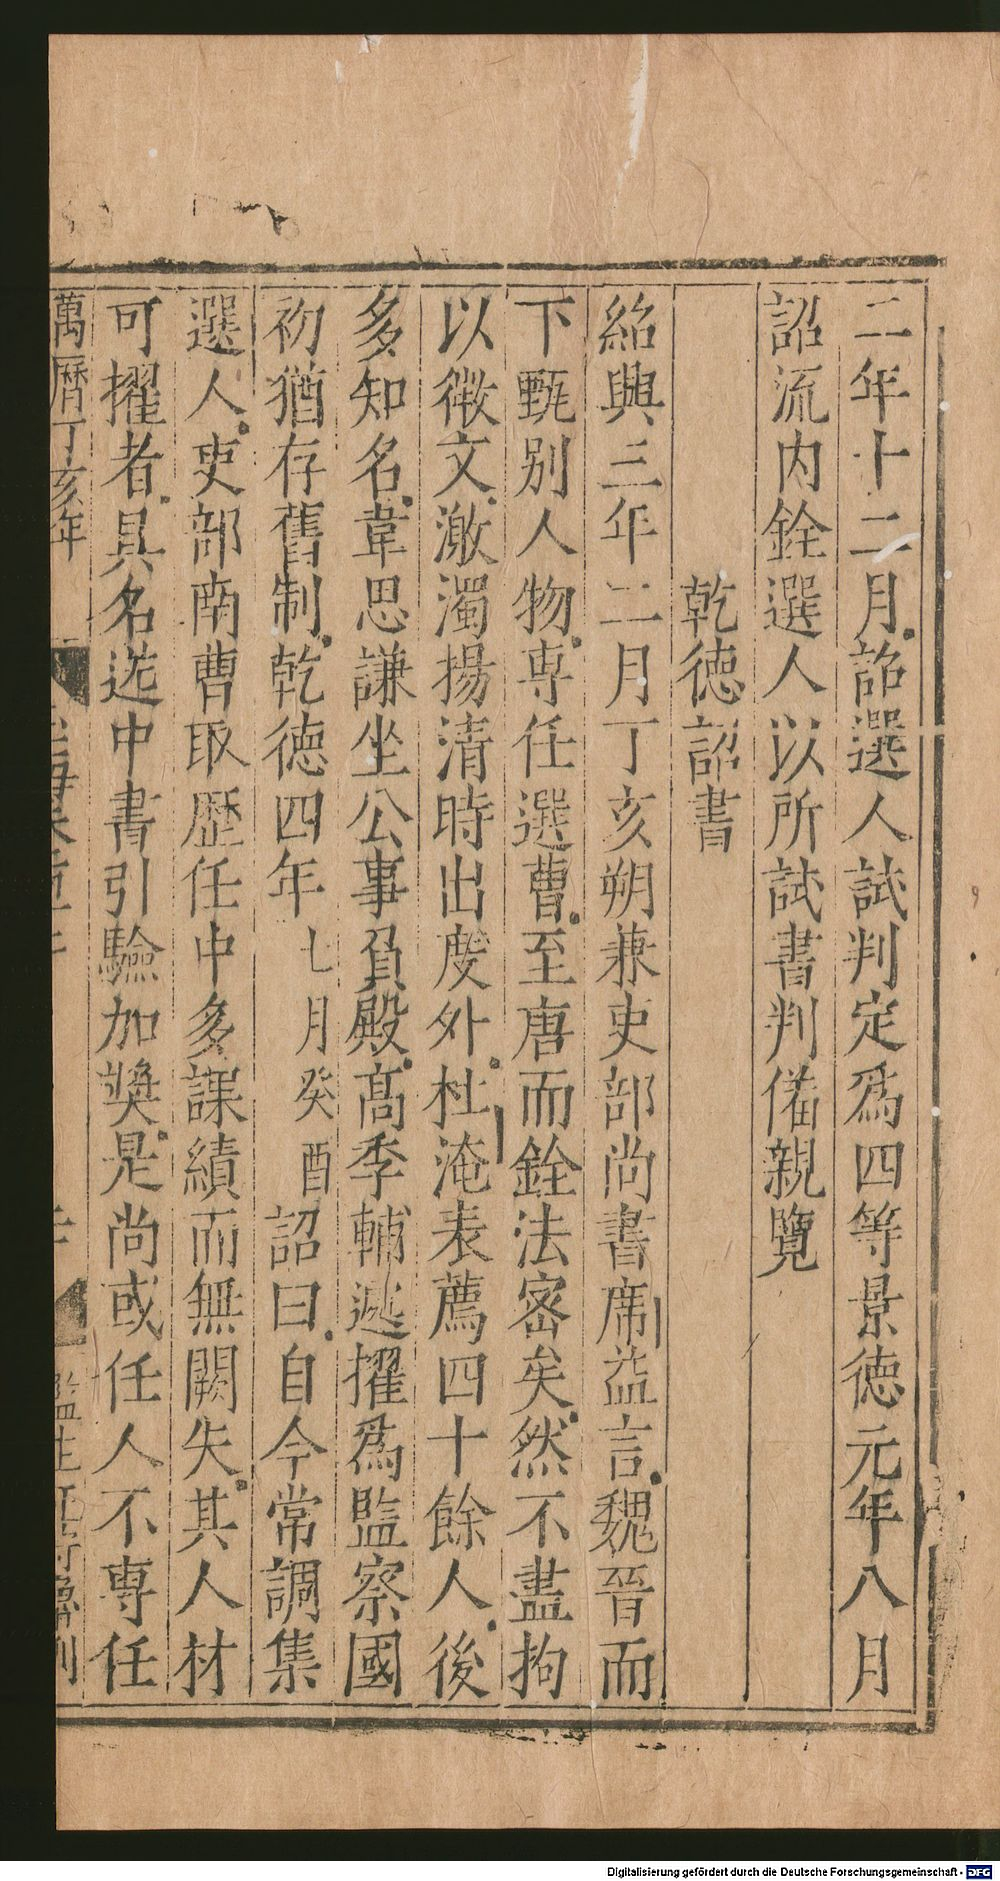 二年十二月詔選人試判定爲四等景德元年八月
詔流内銓選人以所試書判俻親覽
乾德詔書
紹興三年二月丁亥朔兼吏部尚書席益言魏晉而
下甄别人物專任選曹至唐而銓法密矣然不盡拘
以微文激濁揚清時出度外杜淹表薦四十餘人後
多知名韋思謙坐公事負殿高季輔遽擢爲監察國
初猶存舊制乾德四年七月癸酉詔曰自今常調集
選人吏部南曹取歷任中多課績而無闕失其人材
可擢者具名送中書引驗加奬是尚或任人不專任
萬曆丁亥年
Digitalisierung gefördert durch die Deutsche Forschungsgemeinschaft - DFG